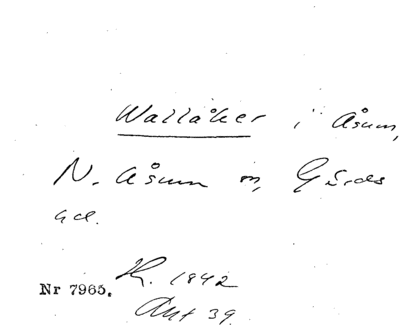 Wallåker i Åsum,
N. Åsum sn, Gärds
hd.
K. 1842
Nr 7965. Akt 39.